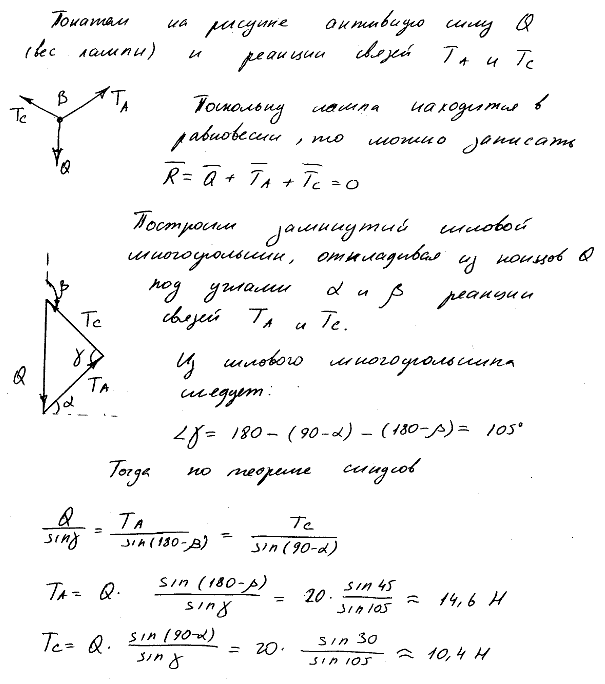 Покажем на рисунке активную силу Q
(вес лампы) и реакции связей T_A и T_C
T_C B T_A
Q
Поскольку лампа находится в
равновесии, то можно записать
R̅ = Q̅ + T̅_A + T̅_C = 0
Построим замкнутый силовой
многоугольник, откладывая из концов Q
под углами α и β реакции
связей T_A и T_C.
β
T_C
γ
Q T_A
α
Из силового многоугольника
следует:
∠γ = 180 - (90-α) - (180-β) = 105°
Тогда по теореме синусов
Q/sinγ = T_A/sin(180-β) = T_C/sin(90-α)
T_A = Q · sin(180-β)/sinγ = 20 · sin 45/sin 105 ≈ 14,6 Н
T_C = Q · sin(90-α)/sinγ = 20 · sin 30/sin 105 ≈ 10,4 Н